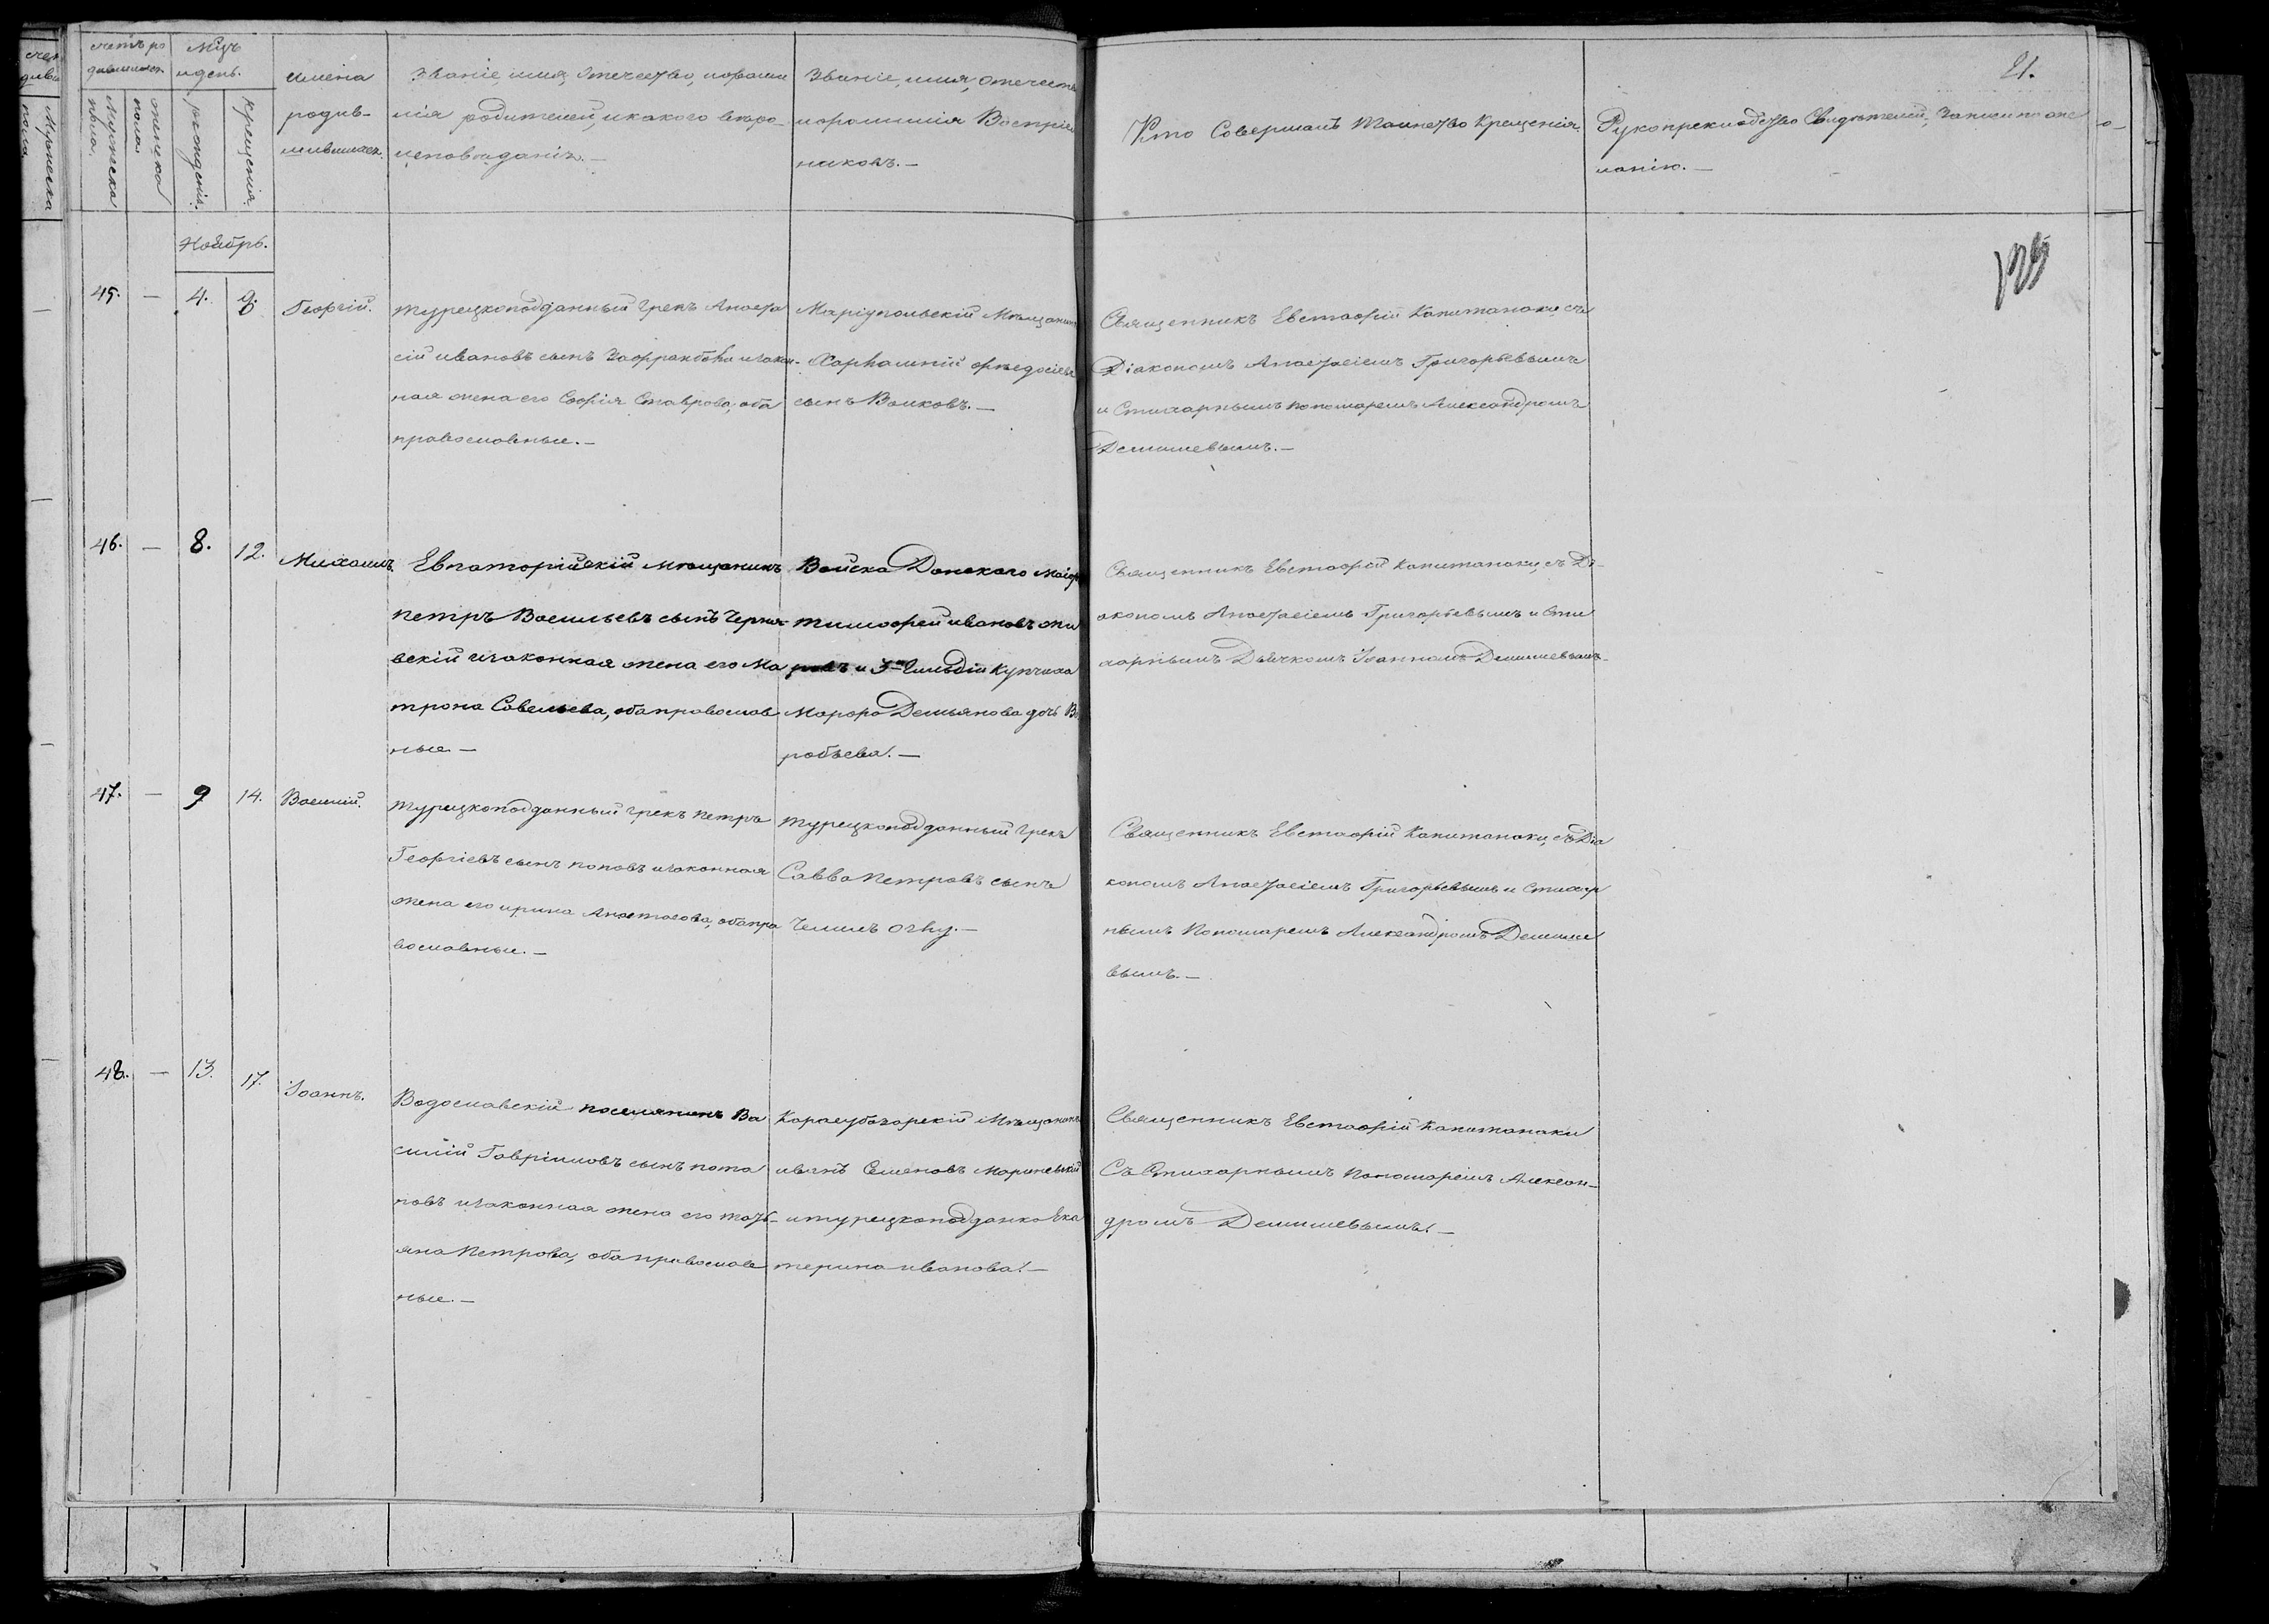 21.
счетъ ро
дившихся
Мцъ
и день.
Имена
родив-
шившихся.
Званіе, имя, отечество, и фами
лія родителей, и какого вѣро-
исповѣданія. —
Званіе, имя, отечеств
и фамилія Воспріем
никовъ. —
Кто Совершалъ Таинство Крещенія.
Рукоприкладство Свидѣтелей, записи по же
ланію. —
Мужеска
пола.
женска
пола
рожденія.
крещенія.
Ноябрь.
45. — 4. 8. Георгій.
турецкоподданный Грекъ Анаста
сій ивановъ сынъ и закон-
ная жена его Софія Ставрова, оба
православные. —
Маріупольскій Мѣщанинъ
Харлампій Ѳ
сынъ Волковъ. —
Священникъ Евстафій Капитанаки съ
Діакономъ Анастасіемъ Григорьевымъ
и Стихарнымъ пономаремъ Александромъ
Демишевымъ. —
46. — 8. 12. Михаилъ.
Евпаторійскій мѣщанинъ
петръ Васильевъ сынъ Черня
вскій и законная жена его Ма
трона Савельева, оба православ
ные. —
Войска Донскаго маіор
тимофей ивановъ
и 3й Гильдіи купчиха
Марфа Демьянова дочь Во
робьева. —
Священникъ Евстафій Капитанаки, съ Ді-
акономъ Анастасіемъ Григорьевымъ и Сти
харнымъ Дьячкомъ Іоанномъ Демишевымъ. —
47. — 9 14. Василій.
турецкоподданный грекъ петръ
Георгіевъ сынъ поповъ и законная
жена его ирина Анастасова, оба пра
вославные. —
турецкоподданный Грекъ
Савва Петровъ сынъ
Священникъ Евстафій Капитанаки, съ Діа
кономъ Анастасіемъ Григорьевымъ и Стихар
нымъ Пономаремъ Александромъ Демише
вымъ. —
48. — 13. 17. Іоаннъ.
поселянинъ Ва
силій Гавріиловъ сынъ пота
повъ и законная жена его тать-
яна Петрова, оба православ
ные. —
Карасубазарскій Мѣщанинъ
иванъ Семеновъ
и турецкоподданка Ека
терина иванова. —
Священникъ Евстафій Капитанаки
Съ Стихарнымъ Пономаремъ Алексан-
дромъ Демишевымъ. —